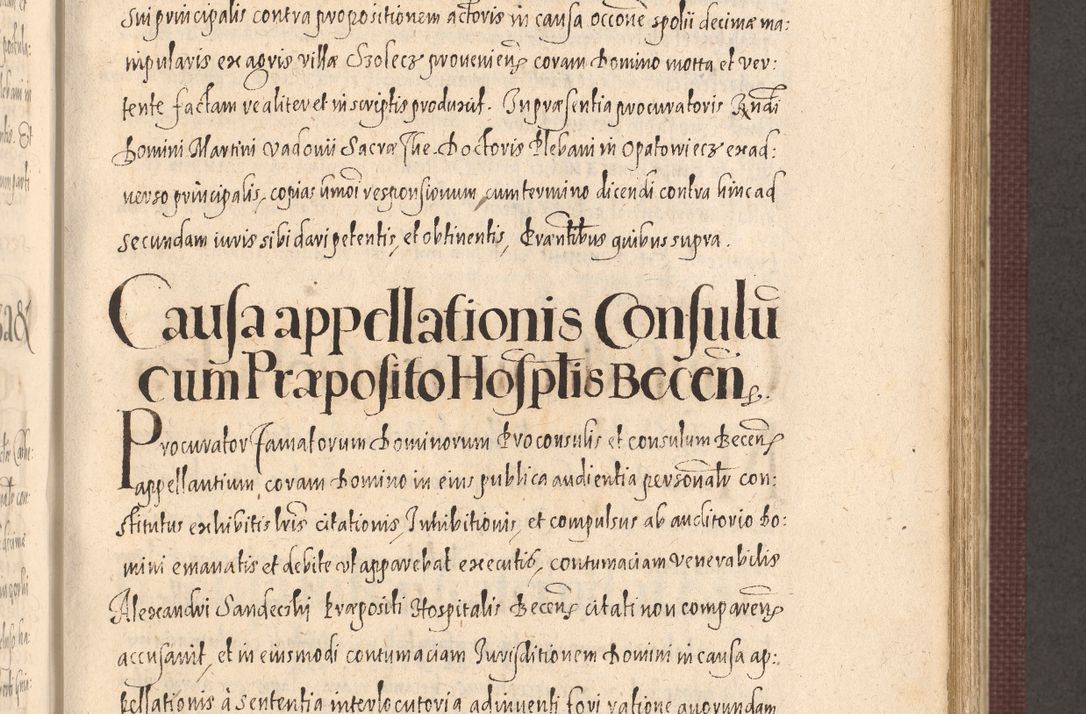 Sui principalis contra propositionem actoris in causa occone spolii decimæ ma:
nipularis ex agris villæ Szolecz provenien coram Domino mota et ver:
tente factam realiter et in scriptis produxit. In præsentia procuratoris Rndi
Domini Martini Vadovii Sacræ The. Doctoris Plebani in Opatowiecz ex ad:
verso principalis, copias hmoi responsionum, cum termino dicendi contra hinc ad
secundam iuris sibi dari petentis, et obtinentis, Præntibus quibus supra.
Causa appellationis Consulū
cum Præposito Hosptis Becen
Procurator famatorum Dominorum Proconsulis et consulum Becen
appellantium, coram Domino in eius publica audientia personalr con:
stitutus exhibitis lris citationis, Inhibitionis, et compulsus ab auditorio Do:
mini emanatis et debite ut apparebat executis, contumaciam Venerabilis
Alexandri Sandecthi Præpositi Hospitalis Becen citati non comparen
accusavit, et in eiusmodi contumaciam Jurisditionem Domini in causa ap:
pellationis à sententia interlocutoria adinventi fori ratione quorundam